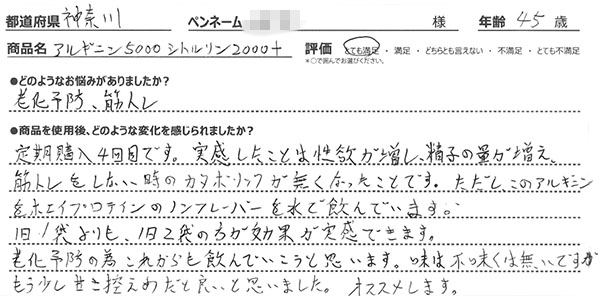 都道府県 神奈川 ペンネーム 様 年齢 45 歳
商品名 アルギニン5000 シトルリン2000+ 評価 とても満足 ・ 満足 ・ どちらとも言えない ・ 不満足 ・ とても不満足
※○で囲んでお選びください。
●どのようなお悩みがありましたか?
老化予防、筋トレ
●商品を使用後、どのような変化を感じられましたか?
定期購入4回目です。実感したことは性欲が増し、精子の量が増え、
筋トレをしない時のカタボリックが無くなったことです。ただし、このアルギニン
をホエイプロテインのノンフレーバーを水で飲んでいます。
1日1袋よりも、1日2袋の方が効果が実感できます。
老化予防の為これからも飲んでいこうと思います。味は不味くは無いですが
もう少し甘さ控えめだと良いと思いました。オススメします。